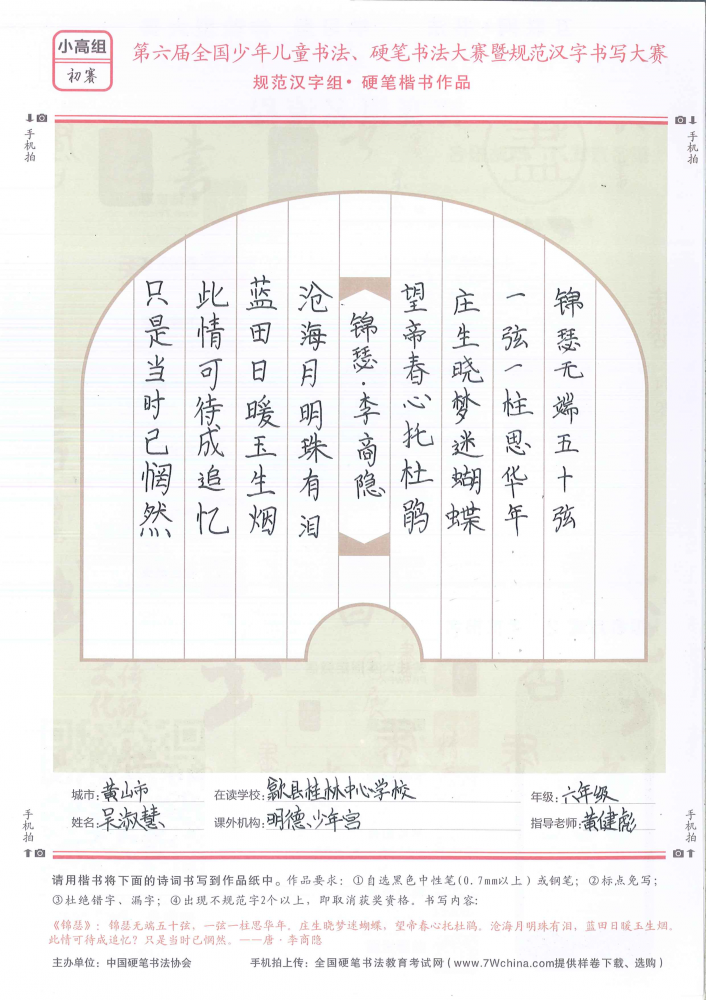 小高组
初赛
第六届全国少年儿童书法、硬笔书法大赛暨规范汉字书写大赛
规范汉字组·硬笔楷书作品
手机拍
手机拍
锦瑟无端五十弦
一弦一柱思华年
庄生晓梦迷蝴蝶
望帝春心托杜鹃
锦瑟·李商隐
沧海月明珠有泪
蓝田日暖玉生烟
此情可待成追忆
只是当时已惘然
城市:黄山市 在读学校:歙县桂林中心学校 年级:六年级
姓名:吴淑慧 课外机构:明德、少年宫 指导老师:黄健彪
手机拍
手机拍
请用楷书将下面的诗词书写到作品纸中。作品要求:①自选黑色中性笔(0.7mm以上)或钢笔;②标点免写;
③杜绝错字、漏字;④出现不规范字2个以上,即取消获奖资格。书写内容:
《锦瑟》:锦瑟无端五十弦,一弦一柱思华年。庄生晓梦迷蝴蝶,望帝春心托杜鹃。沧海月明珠有泪,蓝田日暖玉生烟。
此情可待成追忆?只是当时已惘然。——唐·李商隐
主办单位:中国硬笔书法协会 手机拍上传:全国硬笔书法教育考试网(www.7Wchina.com提供样卷下载、选购)